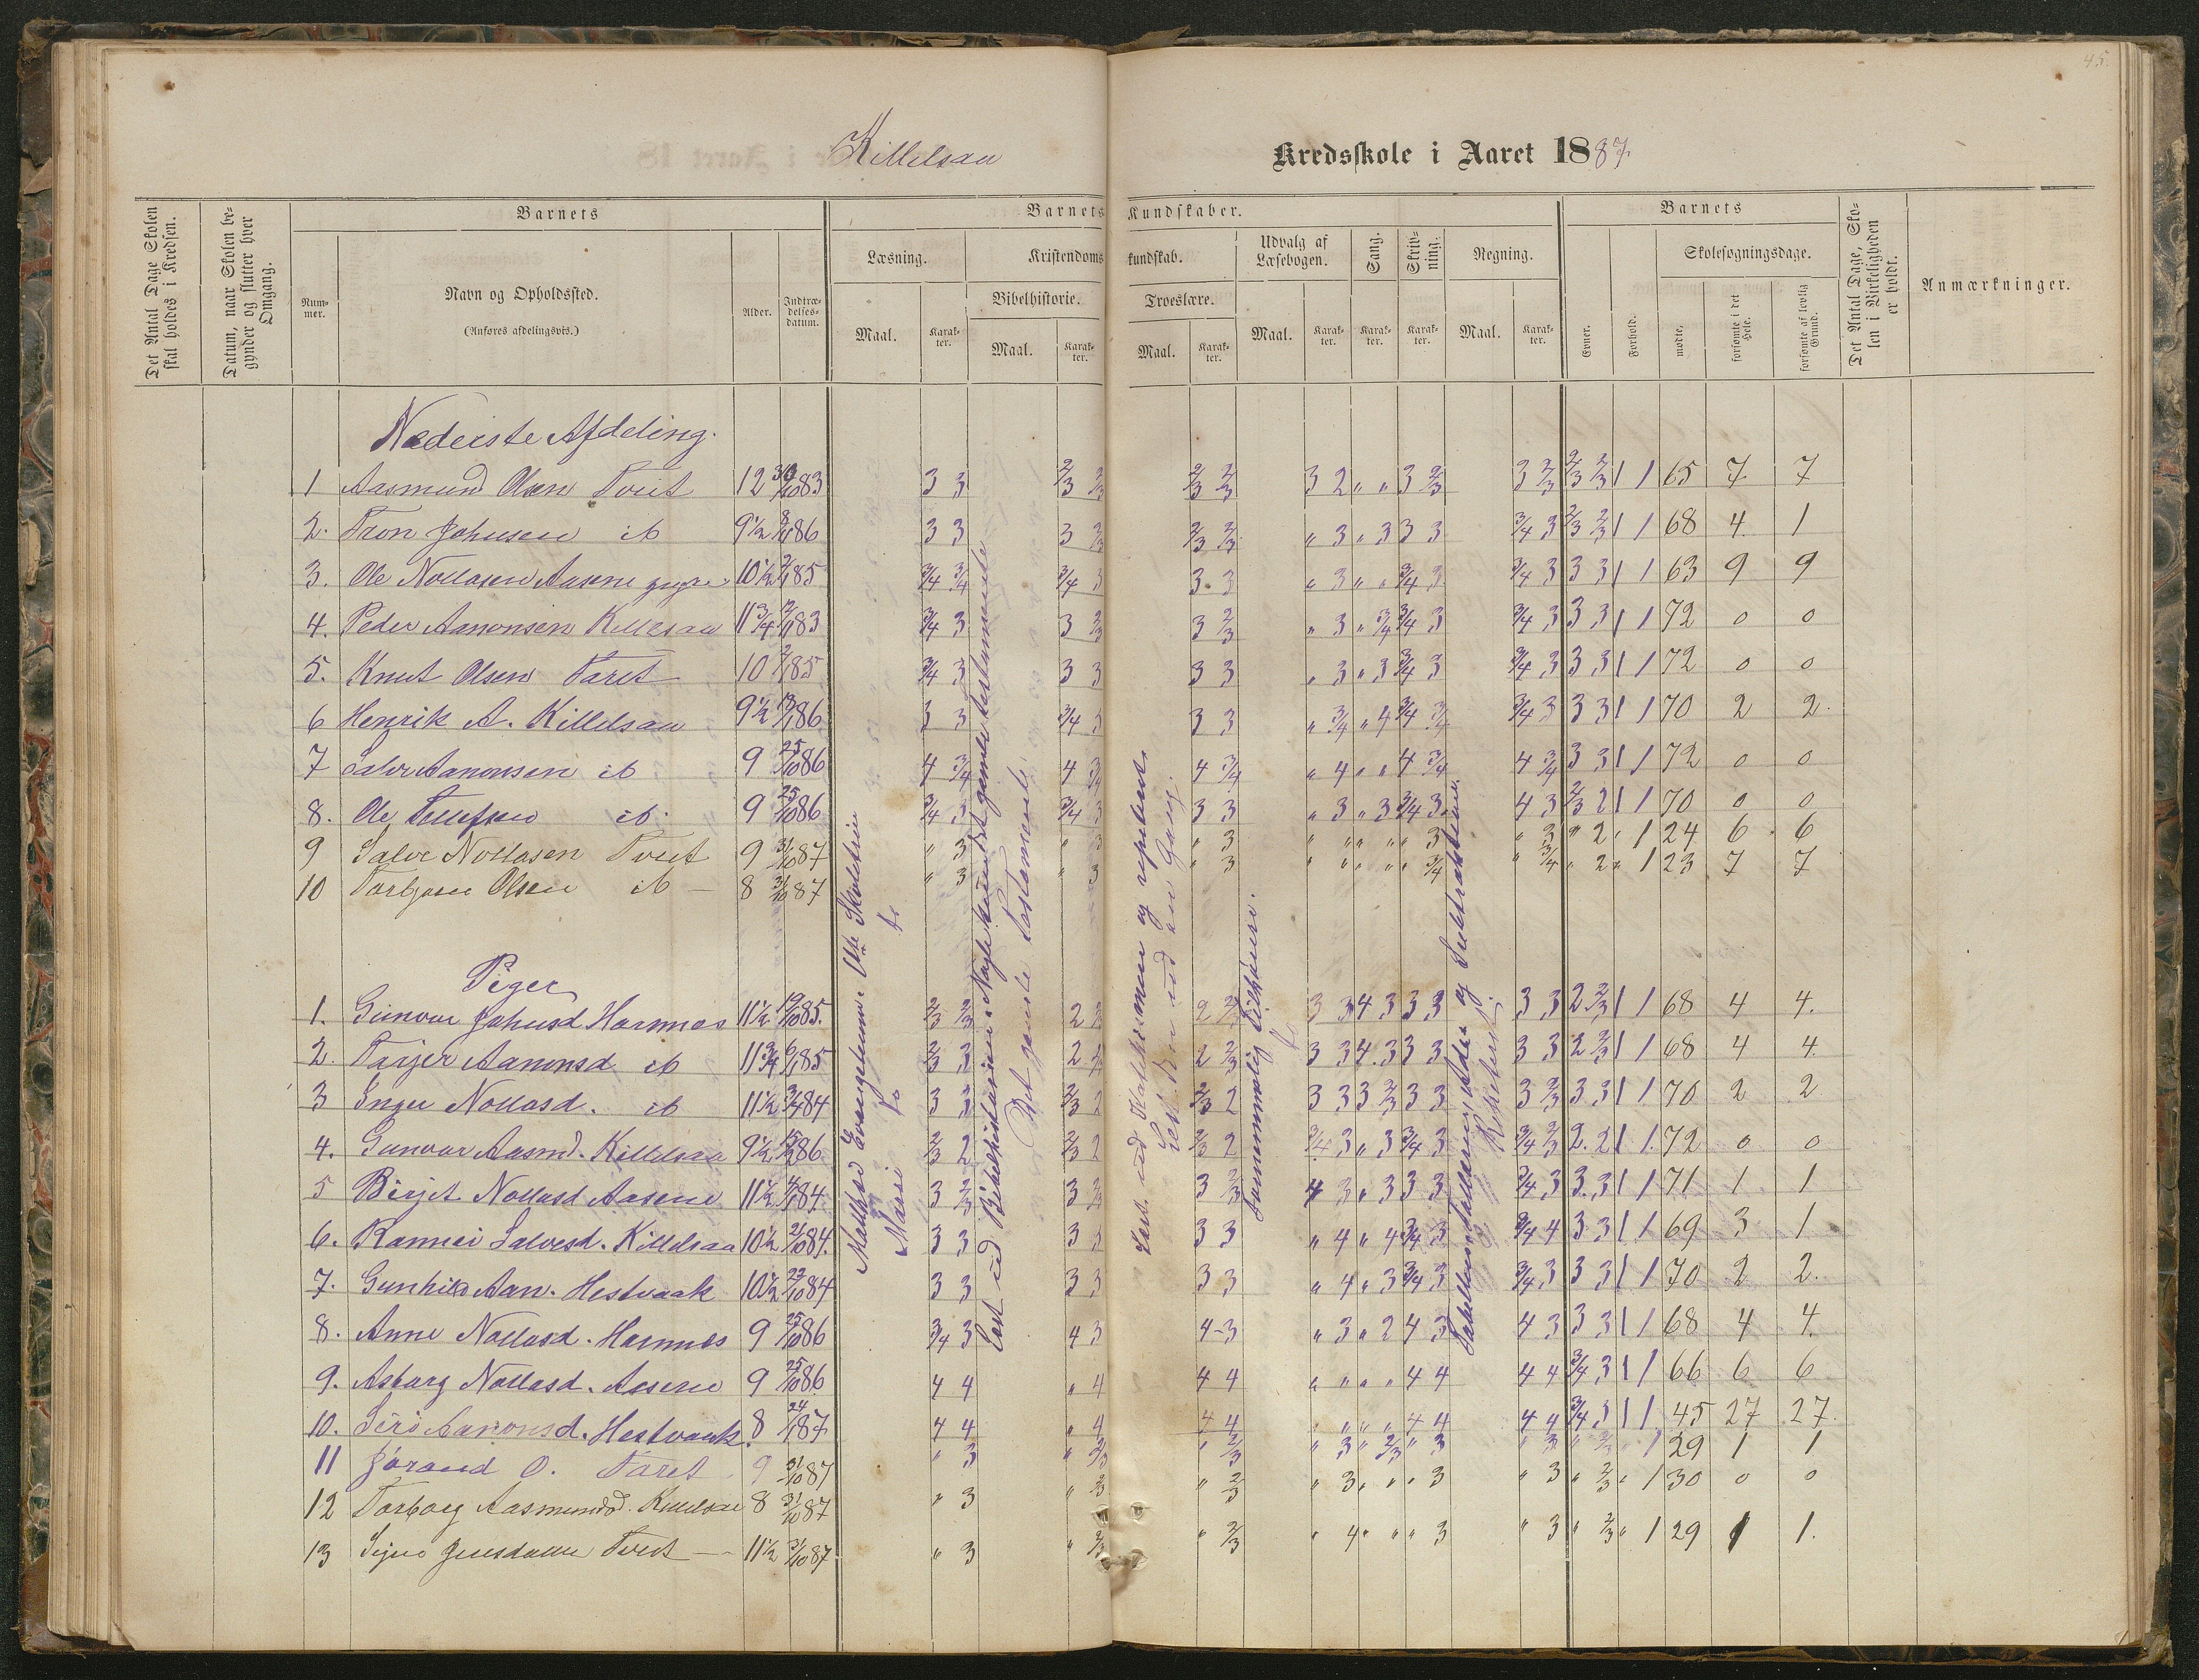 45.
Killelsaa Kredsskole i Aaret 1887.
Det Antal Dage Skolen skal holdes i Kredsen.
Datum, naar Skolen begynder og slutter hver Omgang.
Barnets
Nummer.
Navn og Opholdssted.
(Anføres afdelingsvis.)
Alder.
Indtrædelsesdatum.
Barnets Kundskaber.
Læsning.
Maal.
Karakter.
Kristendomskundskab.
Bibelhistorie.
Maal.
Karakter.
Troeslære.
Maal.
Karakter.
Udvalg af Læsebogen.
Maal.
Karakter.
Sang.
Karakter.
Skrivning.
Karakter.
Regning.
Maal.
Karakter.
Barnets
Evner.
Forhold.
Skolesøgningsdage.
mødte.
forsømte i det Hele.
forsømte af lovlig Grund.
Det Antal Dage, Skolen i Virkeligheden er holdt.
Anmærkninger.
Nederste Afdeling.
1 Aasmund Olsen Tveit 12 83 3 3 2/3 2/3 2/3 2/3 3 2 " " 3 2/3 3 2/3 2/3 2/3 1 1 65 7 7
2. Tron Johnsen ib 9 1/2 86 3 3 3 2/3 2/3 2/3 " 3 " 3 3 3 3/4 3 2/3 2/3 1 1 68 4 1
3. Ole Nollasen Aasene 10 1/2 85 3/4 3/4 3/4 3 3 3 " 3 " " 3/4 3 3/4 3 3 3 1 1 63 9 9
4. Peder Aanonsen Killesaa 11 3/4 83 3/4 3 3 2/3 3 2/3 " 3 " 3/4 3/4 3 3/4 3 3 3 1 1 72 0 0
5. Knut Olsen Taret 10 85 3/4 3 3 3 3 3 " 3 " 3 3/4 3 3/4 3 3 3 1 1 72 0 0
6 Henrik A. Killelsaa 9 1/2 86 3 3 3/4 3 3 3 " 3/4 " 4 3/4 3/4 3/4 3 3 3 1 1 70 2 2.
7 Salve Aanonsen ib 9 25/10 86 4 3/4 4 3/4 4 3/4 " 4 " " 4 3/4 4 3/4 3 3 1 1 72 0 0
8. Ole Tellefsen ib. 9 25/10 86 3/4 3 3/4 3 3 3 " 3 " 3 3/4 3 4 3 2/3 2 1 1 70 0 0
9 Salve Nollasen Tveit 9 31/10 87 " 3 " 3 " 3 " " " " " 3 " 3 " 2 " 1 24 6 6
10 Torbjørn Olsen ib 8 31/10 87 " 3 " 3 " 3 " " " " " 3/4 " 3/4 " 2 " 1 23 7 7
Piger
1. Gunvor Johnsd. Harnnes 11 1/2 85. 2/3 2/3 2 2 3 3 4 3 3 3 3 3 2 2/3 1 1 68 4 4.
2. Tarjer Aanonsd ib 11 3/4 85 2/3 3 2 2 2/3 3 3 4 3 3 3 3 3 2 2/3 1 1 68 4 4.
3 Inger Nollasd. ib 11 1/2 84 3 3 2/3 2 2/3 2 3 3 3 2/3 3 3 3 2/3 3 3 1 1 70 2 2
4. Gunvor Aasmd. Killelsaa 9 1/2 86 2/3 2 2/3 2 2/3 2 3/4 3 " 3 3/4 3 3/4 2/3 2 2 1 1 72 0 0
5 Birjet Nollasd Aasene 11 1/2 84. 3 2/3 3 2/3 3 2/3 4 3 " 3 3 3 3/4 3 3 3 1 1 71 1 1
6. Rannei Salvesd. Killelsaa 10 1/2 21/10 84. 3 3 3 3 3 3 " 4 " 4 3/4 3 3/4 4 3 3 1 1 69 3 1
7. Gunhild Aan. Hestvaak 10 1/2 22/10 84 3 3 3 3 3 3 " 4 " 3 3/4 3 3/4 3 3 3 1 1 70 2 2.
8. Anne Nollasd. Harnnes 9 25/10 86 3/4 3 4 3 4-3 " 3 " 2 4 3 4 3 3 3 1 1 68 4 4.
9. Asborg Nollasd. Aasene 9 25/10 86 4 4 " 4 4 4 " " " " 4 4 4 4 3/4 3 1 1 66 6 6
10. Siri Aanonsd. Hestvaak. 8 87 4 4 " 4 4 4 " " " " 4 4 4 4 3/4 3 1 1 45 27 27.
11 Jørand O. Taret 9 31/10 87 " 3 " 2/3 " 2/3 " 3 " 2/3 " 3 " 3 " 2/3 " 1 29 1 1
12 Torborg Aasmundsd. Killelsaa 8 31/10 87 " 3 " 2/3 " 2/3 " 3 " " " 3 " 3 " 2/3 " 1 30 0 0
13 Signe Tveit 11 1/2 31/10 87 " 3 " 2/3 " 2/3 " 4 " " " 3 " 3 " 2/3 " 1 29 1 1.
Matthæi Evangelium. Skoletrin
Læst ud Bibelhistorien. Nogle kun det gamle testamente
Det gamle Testamente
Læst ud Katekismen og repetert.
Læst den ud en Gang.
Sammenmelig Tilhørere.
Tabellen, Adds og Subtraktionen.
Repetert.